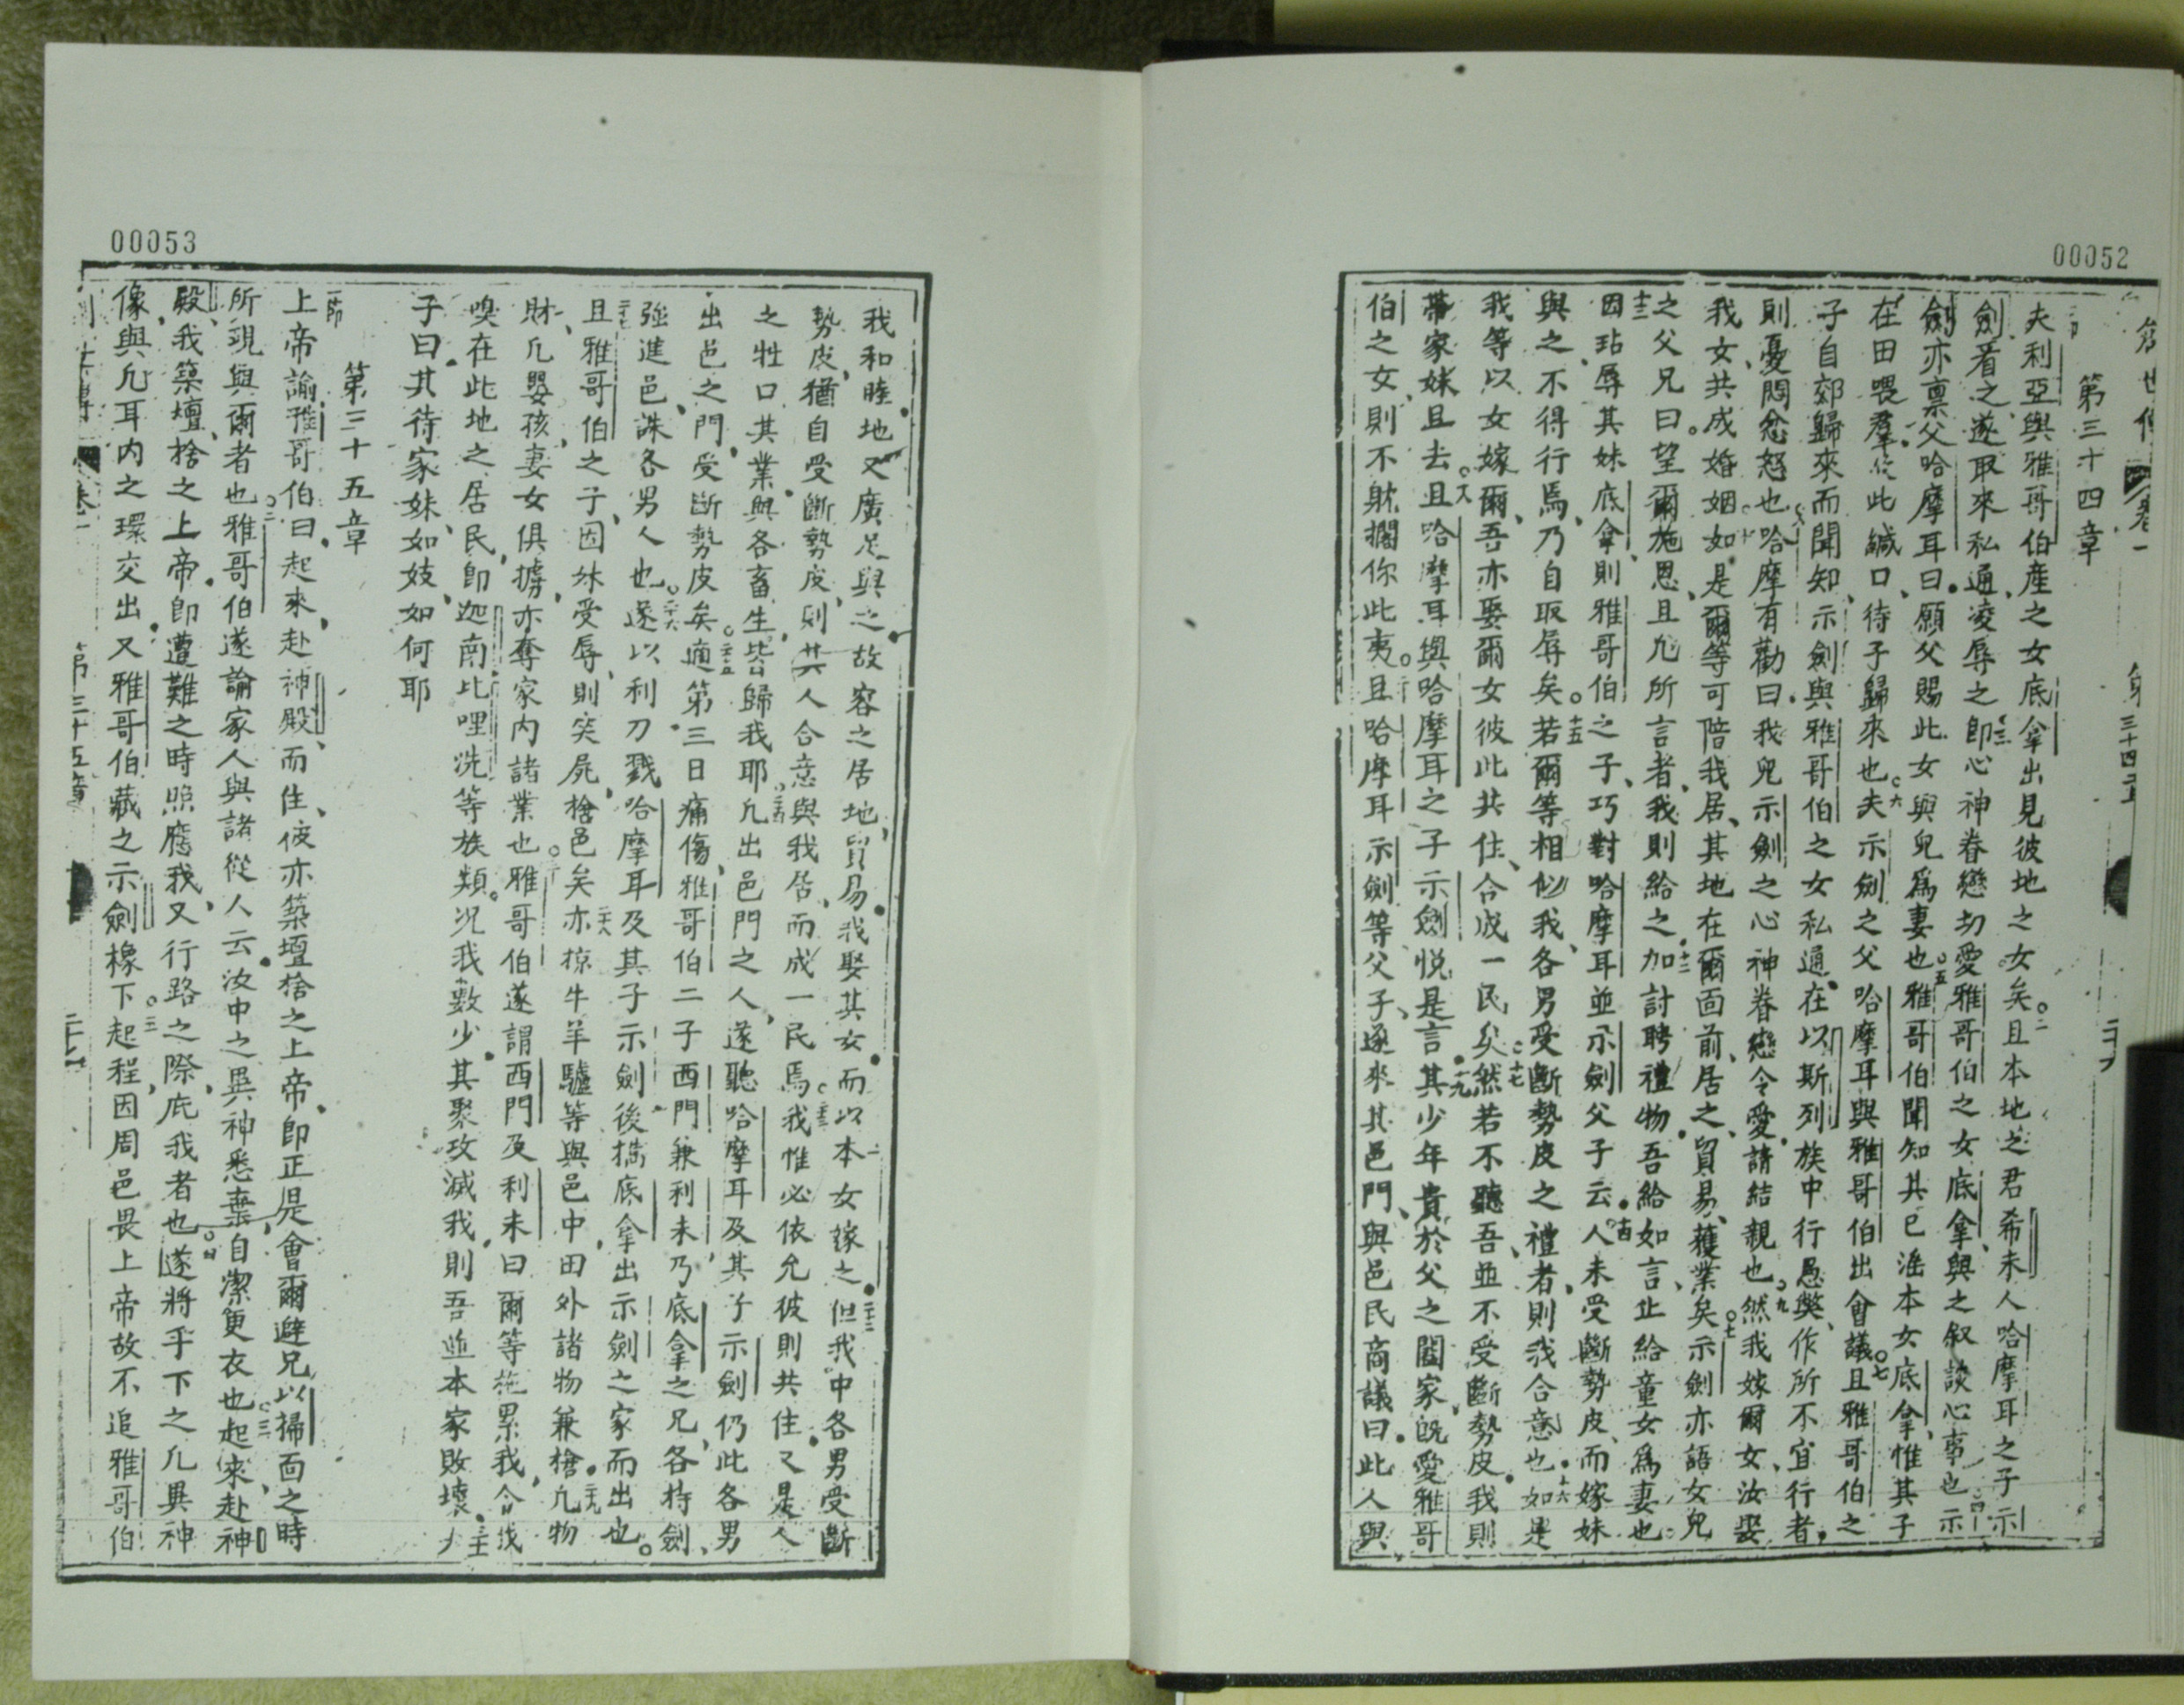 00052
第三十四章
夫利亞與雅哥伯產之女底拿出見彼地之女矣○二且本地之君希未人哈摩耳之子示
劍看之遂取來私通凌辱之○三即心神眷戀切愛雅哥伯之女底拿與之叙談心事也○四示
劍亦禀父哈摩耳曰願父賜此女與兒爲妻也○五雅哥伯聞知其已滛本女底拿惟其子
在田喂羣此緘口待子歸來也○六夫示劍之父哈摩耳與雅哥伯出會議○七且雅哥伯之
子自郊歸來而聞知示劍與雅哥伯之女私通在以斯列族中行愚獘作所不宜行者
則憂悶忿怒也○八哈摩有勸曰我兒示劍之心神眷戀令愛請結親也○九然我嫁爾女汝娶
我女共成婚姻如是○十爾等可陪我居其地在爾面前居之貿易穫業矣示劍亦語女兒
之父兄曰望爾施恩且凢所言者我則給之○十二加討聘禮物吾給如言止給童女爲妻也
十三因玷辱其妹底拿則雅哥伯之子巧對哈摩耳並示劍父子云○十四人未受斷勢皮而嫁妹
與之不得行焉乃自取辱矣○十五若爾等相似我各男受斷勢皮之禮者則我合意也○十六如是
我等以女嫁爾吾亦娶爾女彼此共住合成一民矣○十七然若不聽吾並不受斷勢皮我則
帶家妹且去○十八且哈摩耳與哈摩耳之子示劍悅是言○十九其少年貴於父之閤家旣愛雅哥
伯之女則不躭擱你此夷○二十且哈摩耳示劍等父子逐來其邑門與邑民商議曰此人與
00053
我和睦地又廣足與之故容之居地貿易我娶其女而以本女嫁之○二十二但我中各男受斷
勢皮猶自受斷勢皮則其人合意與我居而成一民焉○二十三我惟必依允彼則共住又是人
之牲口其業與各畜生皆歸我耶○二十四凢出邑門之人遂聽哈摩耳及其子示劍仍此各男
出邑之門受斷勢皮矣○二十五適第三日痛傷雅哥伯二子西門兼利未乃底拿之兄各持劍
強進邑誅各男人也○二十六遂以利刀戮哈摩耳及其子示劍後擕底拿出示劍之家而出也○
二十七且雅哥伯之子因妹受辱則突屍搶邑矣二十八亦掠牛羊驢等與邑中田外諸物兼搶○二十九凢物
財凢嬰孩妻女俱擄亦奪家内諸業也○三十雅哥伯遂謂西門及利未曰爾等拖累我令我
嗅在此地之居民即迦南比哩洗等族類況我數少其聚攻滅我則吾並本家敗壞○三十一
子曰其待家妹如妓如何耶
第三十五章
一節
上帝諭雅哥伯曰起來赴神殿而住彼亦築壇捨之上帝即正是會爾避兄以掃面之時
所現與爾者也○二雅哥伯遂諭家人與諸從人云汝中之異神悉棄自潔更衣也○三起來赴神
殿我築壇捨之上帝即遭難之時照應我又行路之際庇我者也○四遂將手下之凢異神
像與凢耳内之環交出又雅哥伯藏之示劍橡下○五起程因周邑畏上帝故不追雅哥伯
第三十五章